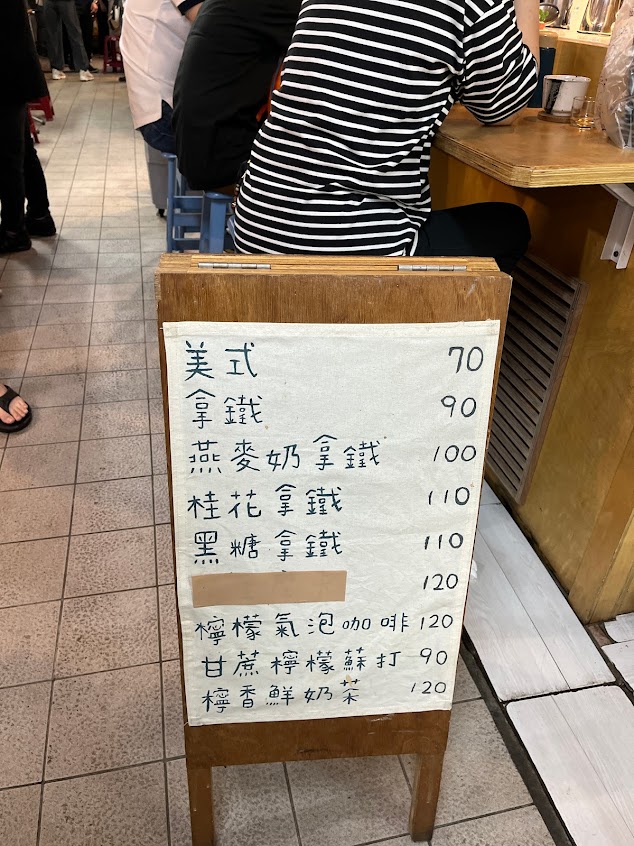 美式 70
拿鐵 90
燕麥奶拿鐵 100
桂花拿鐵 110
黑糖拿鐵 110
120
檸檬氣泡咖啡 120
甘蔗檸檬蘇打 90
檸香鮮奶茶 120